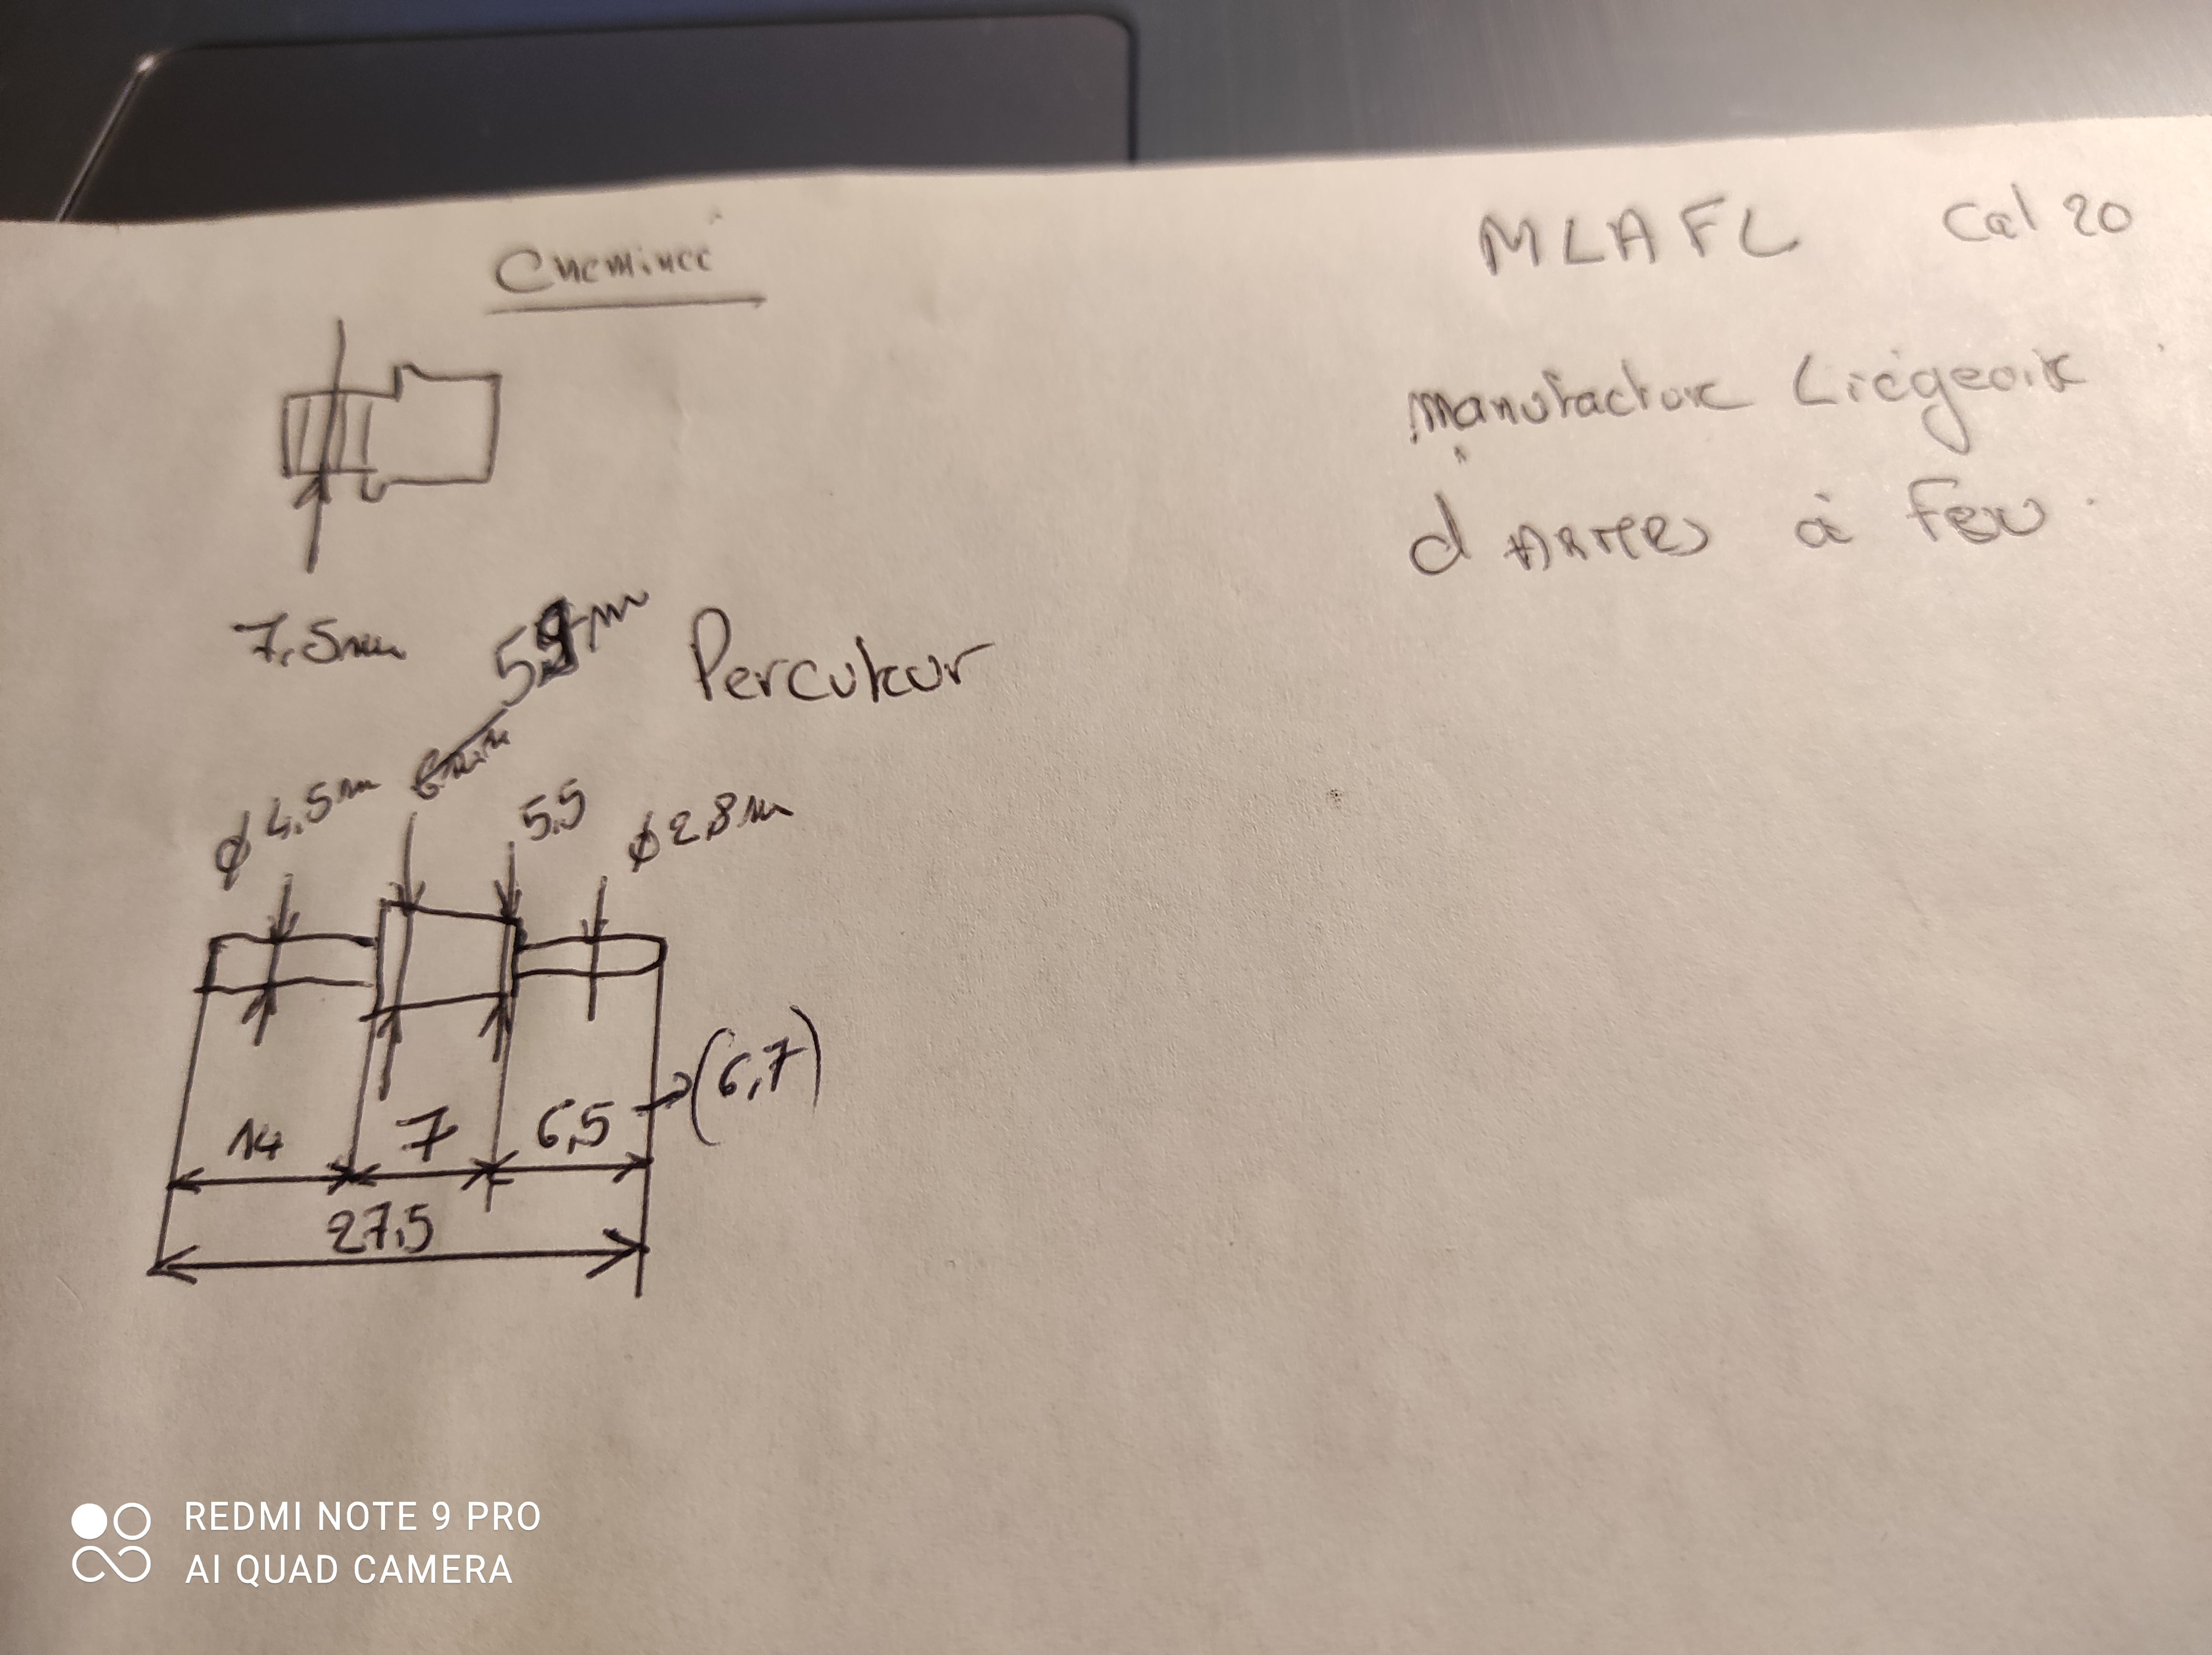 Cheminée
MLAFL Cal 20
Manufacture Liégeoise
d ARMES à Feu.
7,5mm
5,9mm
Percuteur
ϕ4,5m
6mm
5,5
ϕ2,8m
(6,7)
14
7
6,5
27,5
REDMI NOTE 9 PRO
AI QUAD CAMERA